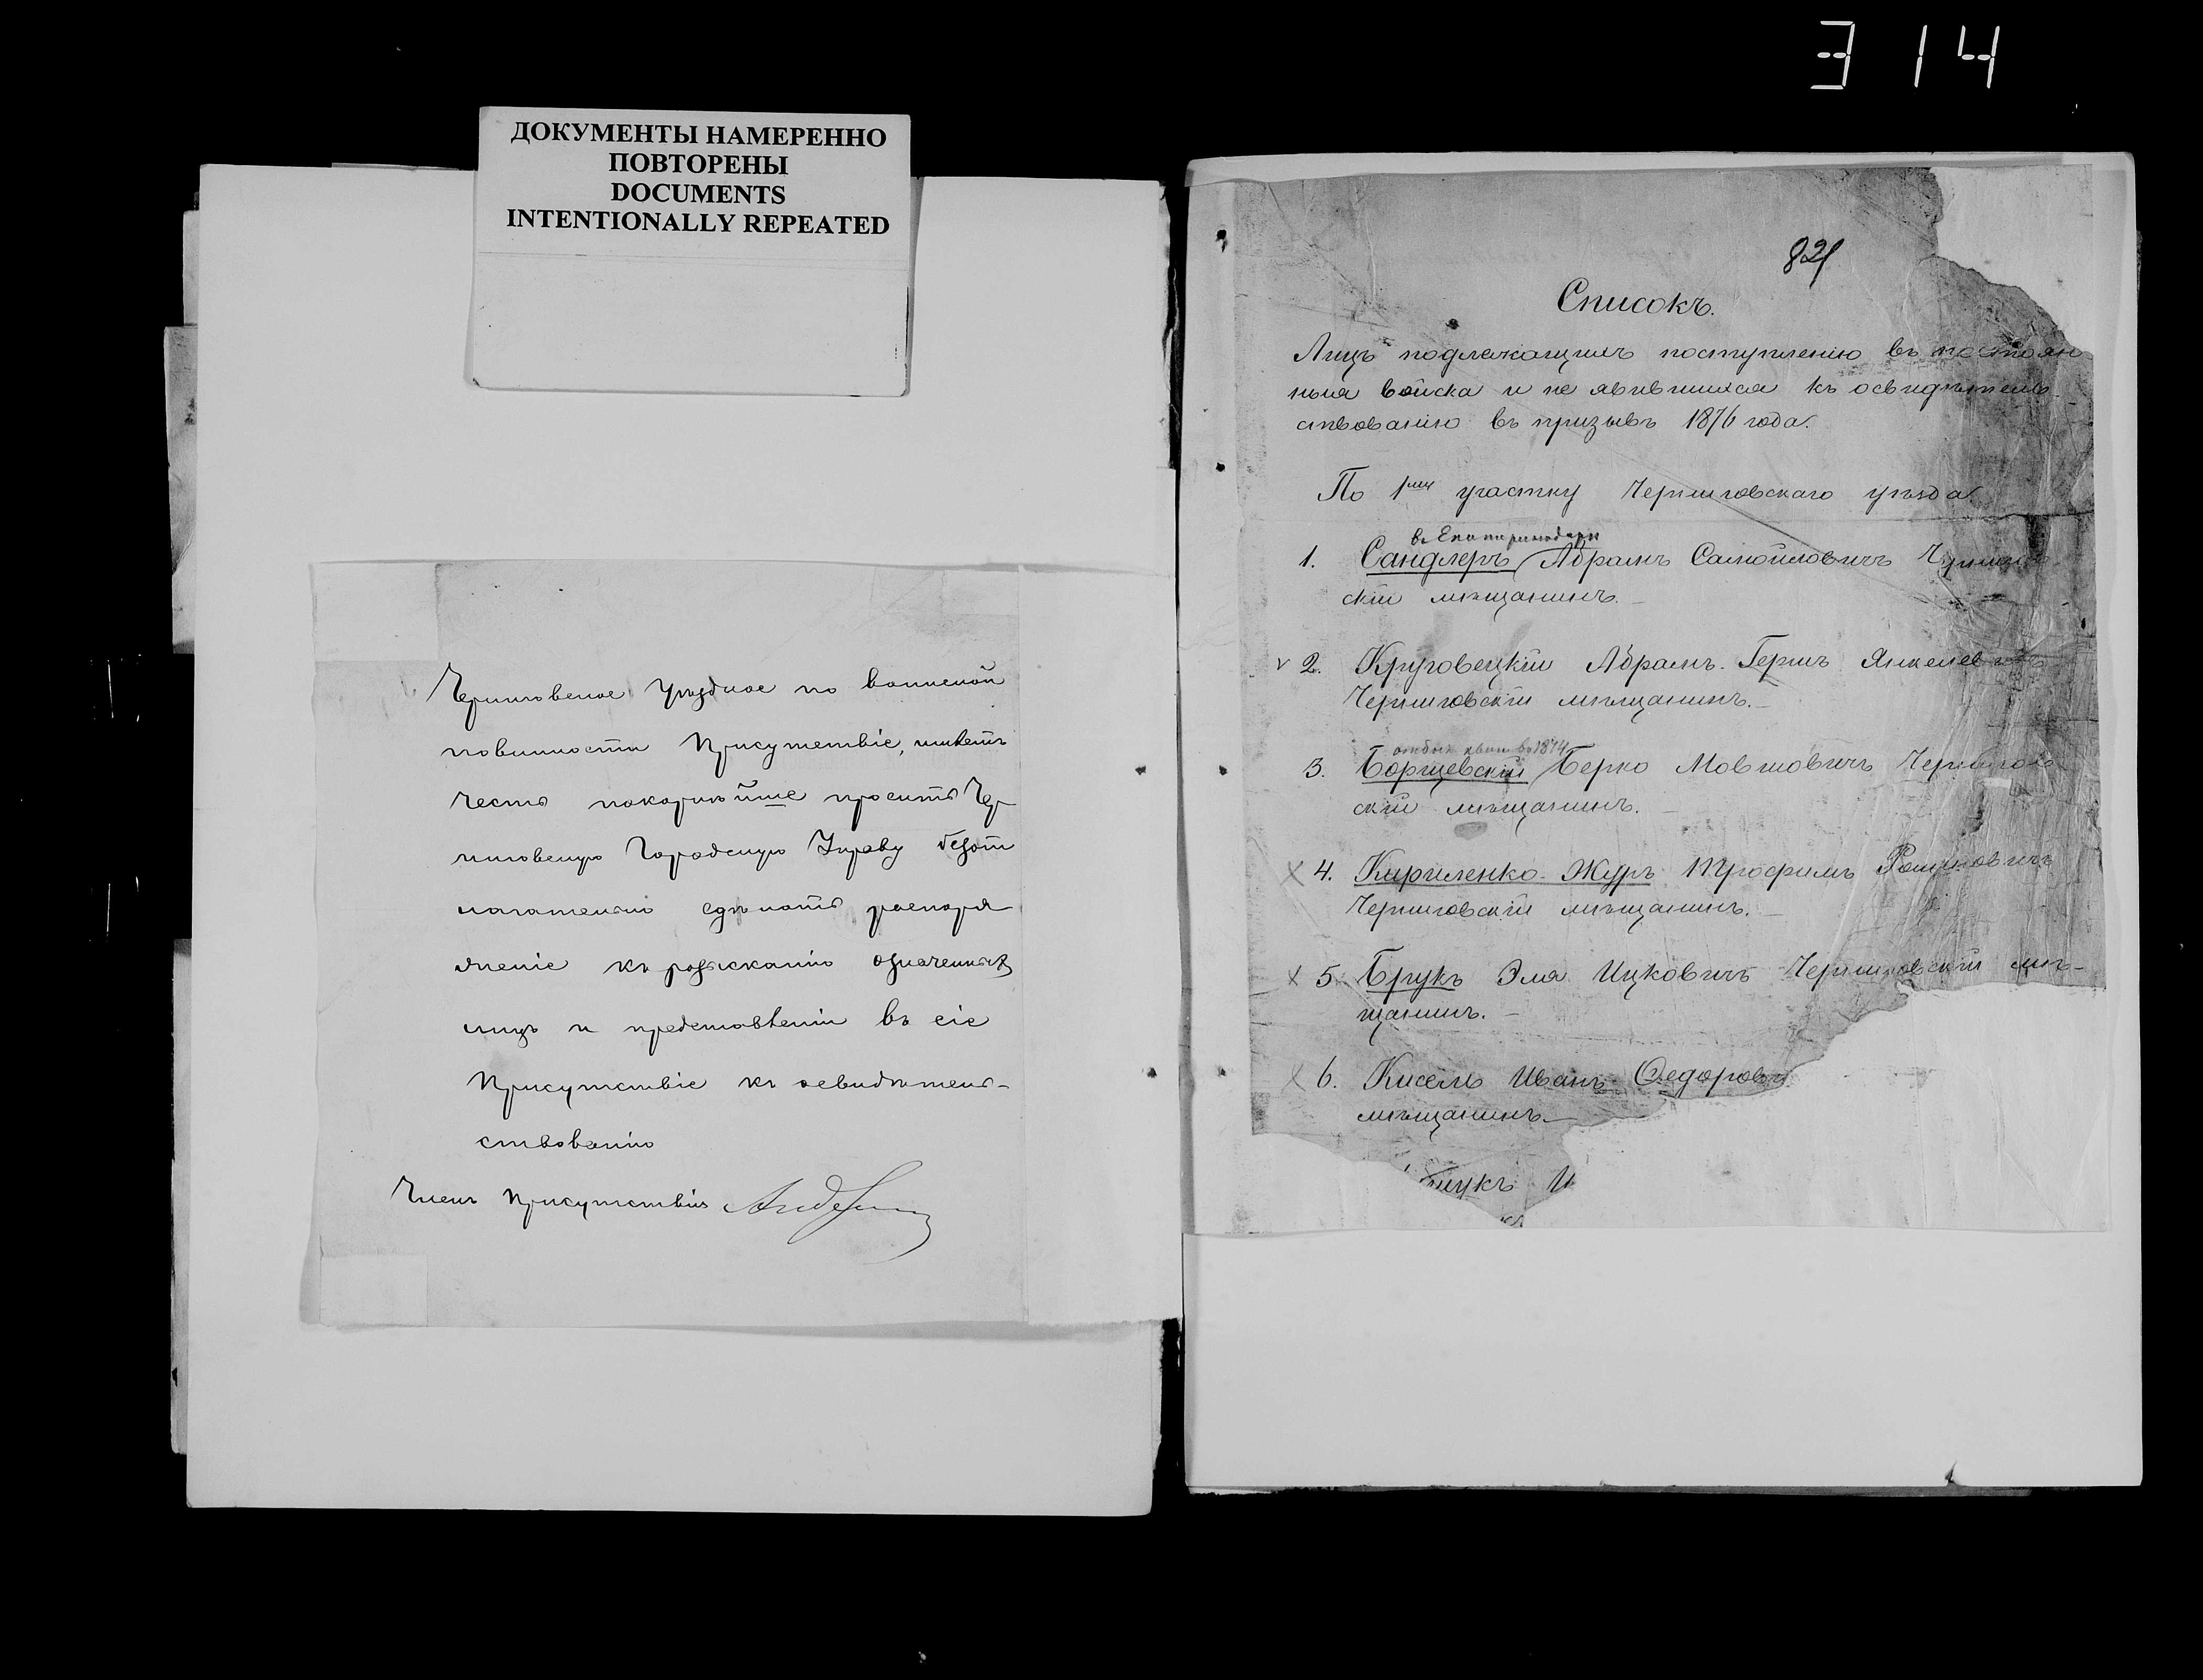 314
ДОКУМЕНТЫ НАМЕРЕННО
ПОВТОРЕНЫ
DOCUMENTS
INTENTIONALLY REPEATED
Черниговское Уѣздное по воинской
повинности Присутствіе, имѣетъ
честь покорнѣйше просить Чер
ниговскую Городскую Управу безот
лагательно сдѣлать распоря
женіе къ розысканію означенныхъ
лицъ и представленіи въ сіе
Присутствіе къ освидѣтель-
ствованію
Членъ Присутствія
821
Списокъ.
Лицъ подлежащихъ поступленію въ постоян
ныя войска и не явившихся къ освидѣтель-
ствованію въ призывъ 1876 года.
По 1му участку Черниговскаго уѣзда.
в Екатеринодарѣ
1. Сандлеръ Абрамъ Самойловичъ Чернигов
скій мѣщанинъ. –
v 2. Круговецкій Абрамъ-Гершъ Янкелевичъ
Черниговскій мѣщанинъ. –
въ 1874
3. Борщевскій Берко Мовшовичъ Чернигов
скій мѣщанинъ. –
х 4. Кириленко-Журъ Трофимъ Романовичъ
Черниговскій мѣщанинъ. –
х 5. Брукъ Эля Ицковичъ Черниговскій мѣ-
щанинъ. –
х 6. Кисель Иванъ Ѳедорови
мѣщанинъ. –
щукъ И